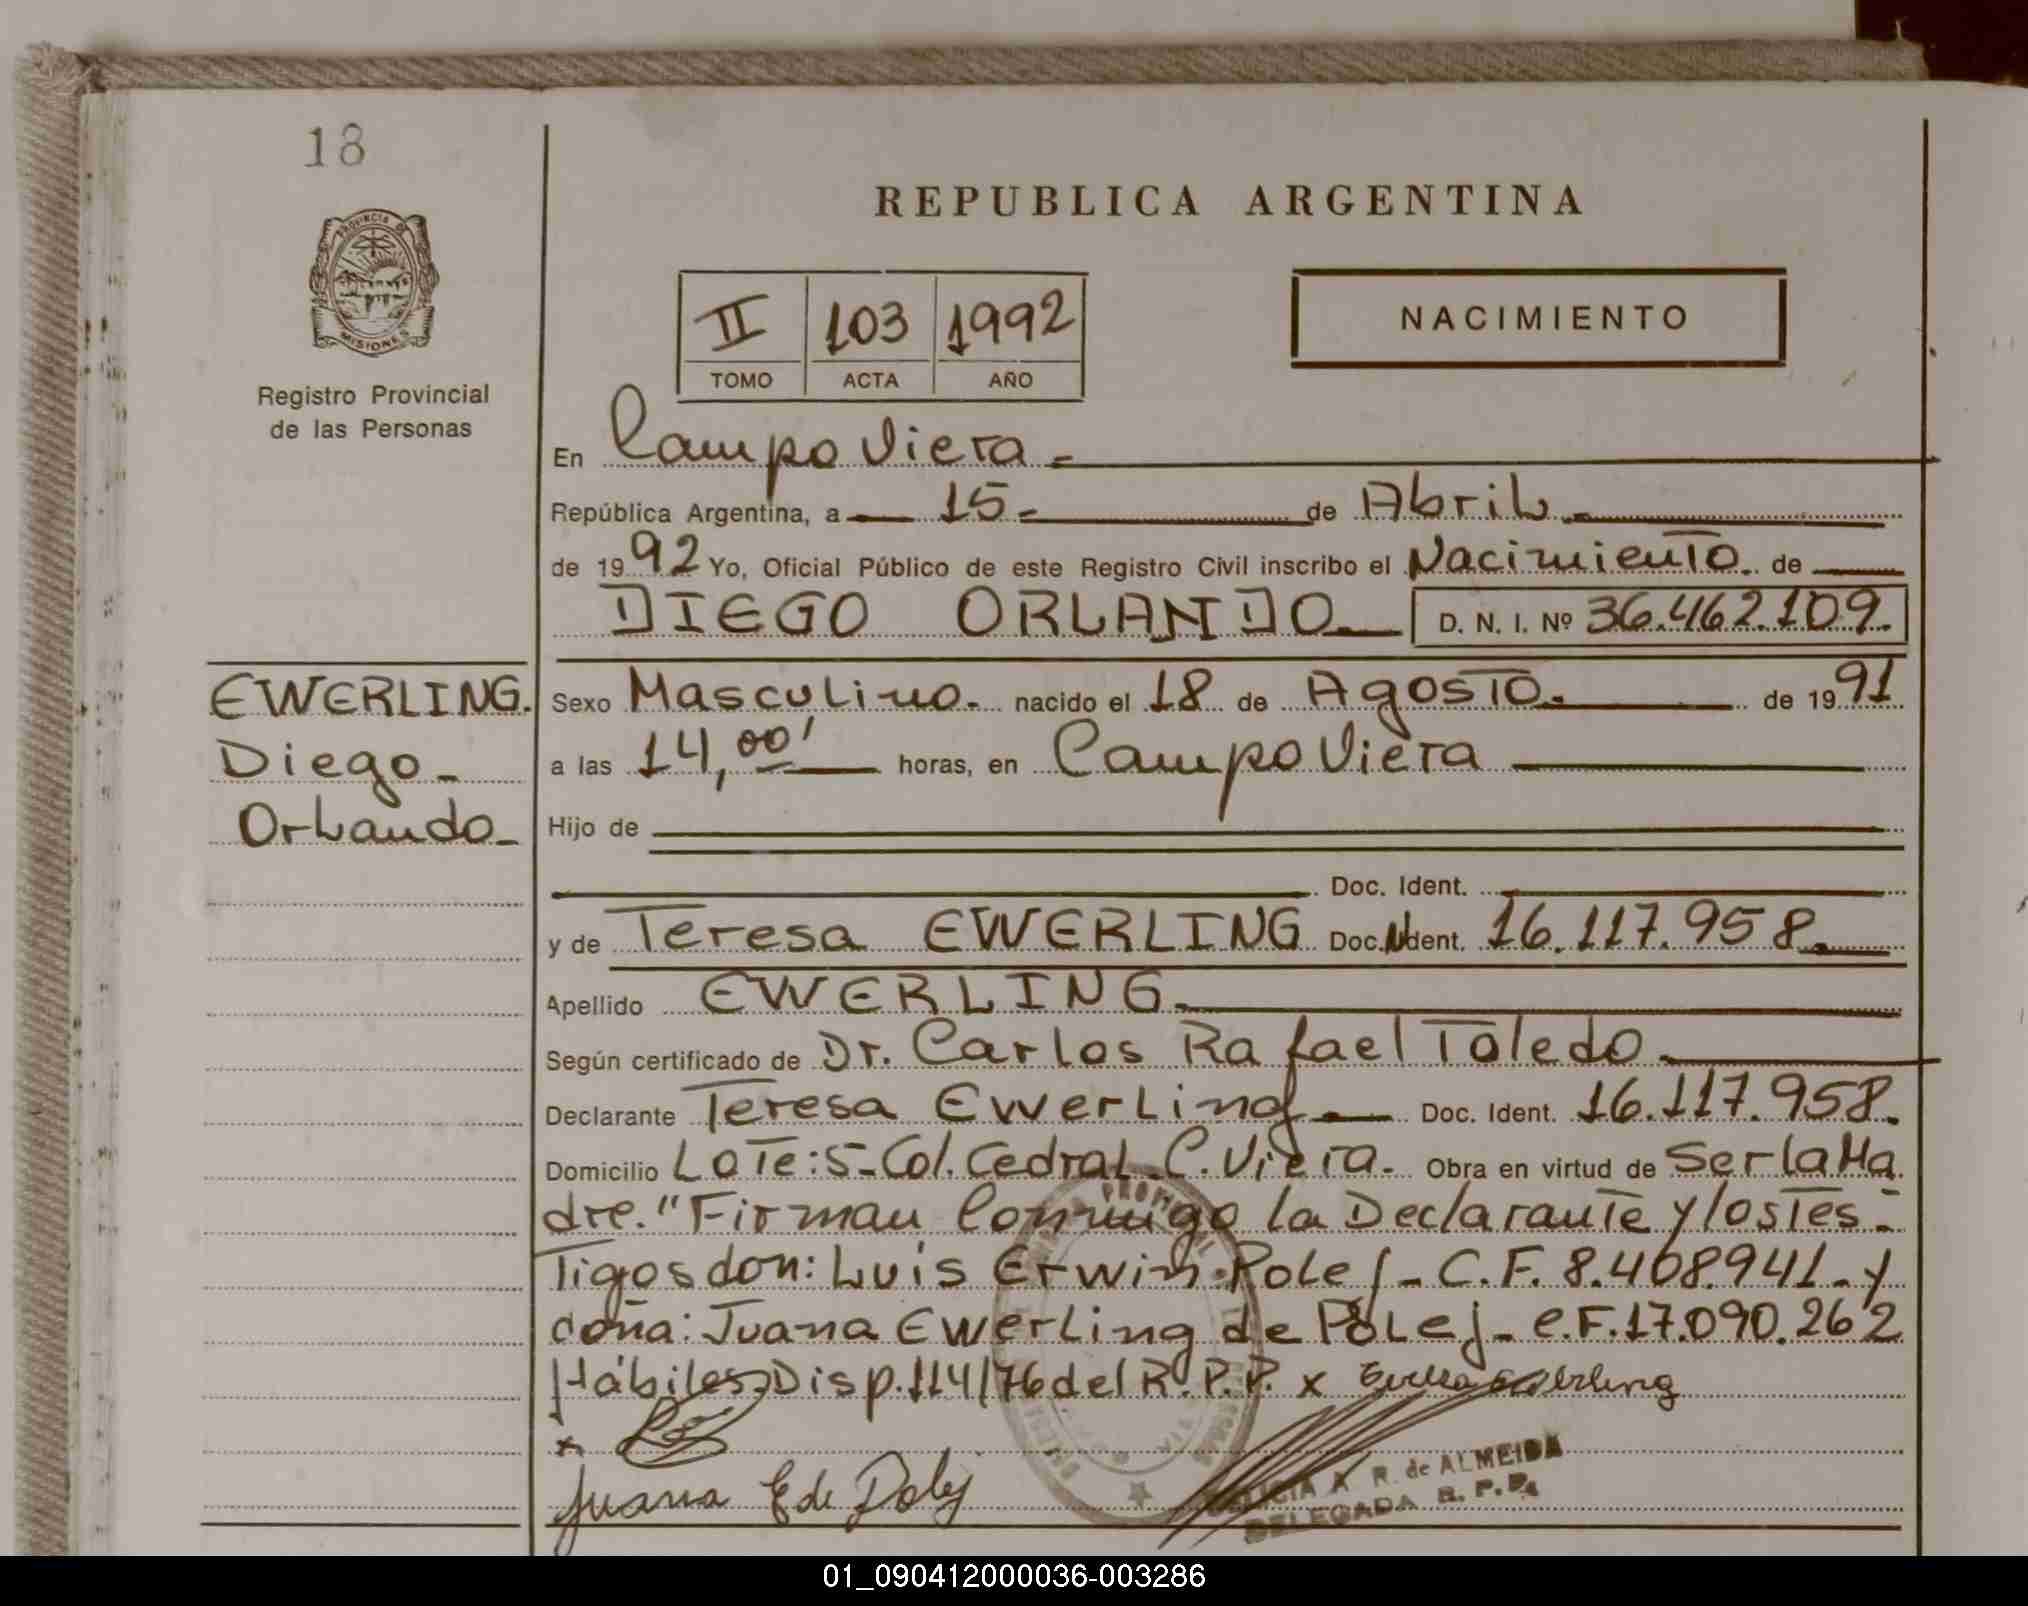 18
REPUBLICA ARGENTINA
PROVINCIA DE
MISIONES
II 103 1992
TOMO ACTA AÑO
NACIMIENTO
Registro Provincial
de las Personas
En Campo Viera
República Argentina, a 15 de Abril
de 1992 Yo, Oficial Público de este Registro Civil inscribo el Nacimiento de
DIEGO ORLANDO D. N. I. Nº 36.462.109.
EWERLING.
Diego
Orlando
Sexo Masculino. nacido el 18 de Agosto de 1991
a las 14,00' horas, en Campo Viera
Hijo de
Doc. Ident.
y de Teresa EWERLING Doc. Ident. 16.117.958.
Apellido EWERLING
Según certificado de Dr. Carlos Rafael Toledo
Declarante Teresa Ewerling Doc. Ident. 16.117.958.
Domicilio Lote: 5- Col. Cedral- C. Viera. Obra en virtud de Ser la Ma
dre. "Firman Conmigo la Declarante y los Tes-
Tigos don: Luis Erwin Polej- C.F. 8.408941- y
doña: Juana Ewerling de Polej- C.F. 17.090.262
Hábiles Disp. 114/76 del R.P.P. x
x
Juana E de Polej
A R. de ALMEIDA
DELEGADA R. P. P.
01_090412000036-003286